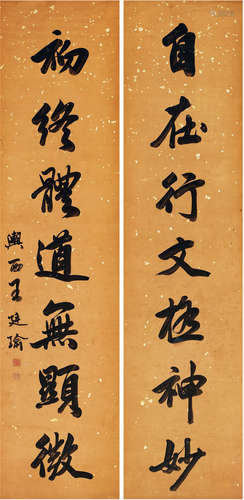 自在行文極神妙
初終體道無顯微
輿西王廷瑜